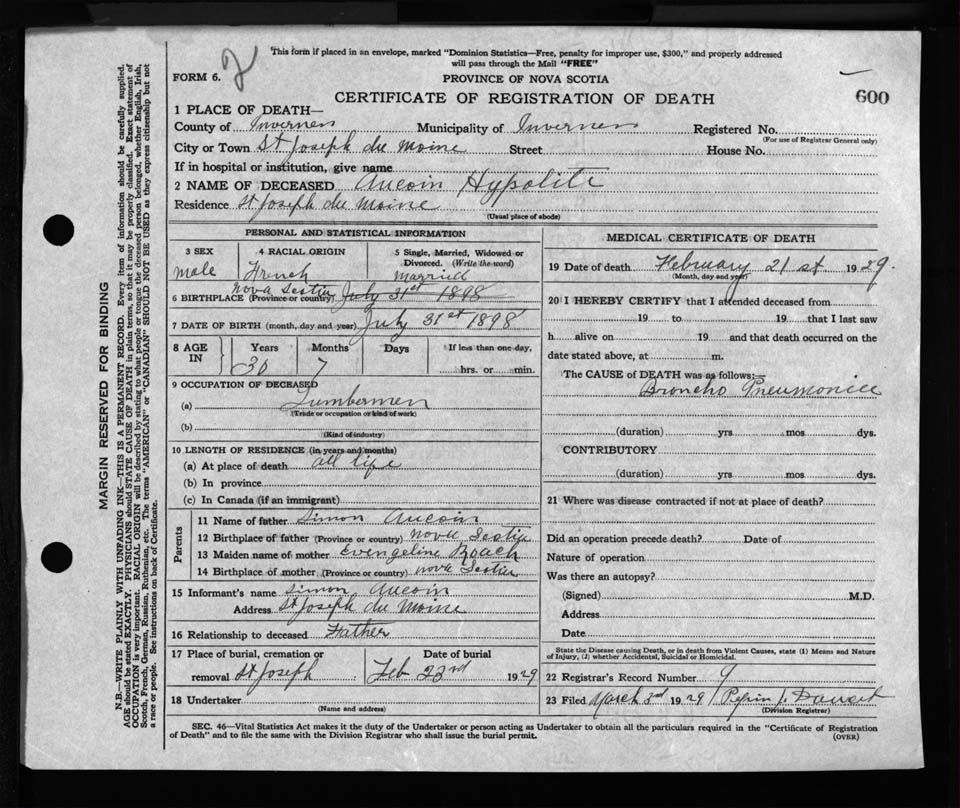 This form if placed in an envelope, marked "Dominion Statistics—Free, penalty for improper use, $300," and properly addressed
will pass through the Mail "FREE"
FORM 6. 2
PROVINCE OF NOVA SCOTIA
CERTIFICATE OF REGISTRATION OF DEATH 600
1 PLACE OF DEATH—
County of Inverness Municipality of Inverness Registered No.
(For use of Registrar General only)
City or Town St Joseph du Moine Street House No.
If in hospital or institution, give name
2 NAME OF DECEASED Aucoin Hypolite
Residence St Joseph du Moine
(Usual place of abode)
PERSONAL AND STATISTICAL INFORMATION
3 SEX 4 RACIAL ORIGIN 5 Single, Married, Widowed or
Divorced. (Write the word)
male French married
6 BIRTHPLACE (Province or country) Nova Scotia July 31st 1898
7 DATE OF BIRTH (month, day and year) July 31st 1898
8 AGE IN Years Months Days If less than one day,
30 7 hrs. or min.
9 OCCUPATION OF DECEASED
(a) Lumbermen
(Trade or occupation or kind of work)
(b)
(Kind of industry)
10 LENGTH OF RESIDENCE (in years and months)
(a) At place of death all life
(b) In province
(c) In Canada (if an immigrant)
Parents
11 Name of father Simon Aucoin
12 Birthplace of father (Province or country) Nova Scotia
13 Maiden name of mother Evengeline Roach
14 Birthplace of mother (Province or country) Nova Scotia
15 Informant's name Simon Aucoin
Address St Joseph du Moine
16 Relationship to deceased Father
17 Place of burial, cremation or Date of burial
removal St Joseph Feb 23rd 1929
18 Undertaker
(Name and address)
MEDICAL CERTIFICATE OF DEATH
19 Date of death February 21st 1929.
(Month, day and year)
20 I HEREBY CERTIFY that I attended deceased from
19 to 19 that I last saw
h alive on 19 and that death occurred on the
date stated above, at m.
The CAUSE of DEATH was as follows:—
Broncho Pneumonia
(duration) yrs mos dys.
CONTRIBUTORY
(duration) yrs mos dys.
21 Where was disease contracted if not at place of death?
Did an operation precede death? Date of
Nature of operation
Was there an autopsy?
(Signed) M.D.
Address
Date
State the Disease causing Death, or in death from Violent Causes, state (1) Means and Nature
of Injury, (2) whether Accidental, Suicidal or Homicidal.
22 Registrar's Record Number 9
23 Filed March 3rd 1929
(Division Registrar)
SEC. 46—Vital Statistics Act makes it the duty of the Undertaker or person acting as Undertaker to obtain all the particulars required in the "Certificate of Registration
of Death" and to file the same with the Division Registrar who shall issue the burial permit. (OVER)
MARGIN RESERVED FOR BINDING
N.B.—WRITE PLAINLY WITH UNFADING INK—THIS IS A PERMANENT RECORD. Every item of information should be carefully supplied.
AGE should be stated EXACTLY. PHYSICIANS should STATE CAUSE OF DEATH in plain terms, so that it may be properly classified. Exact statement of
OCCUPATION is very important. RACIAL ORIGIN will be described by stating to what people or tongue the deceased person belonged, whether English, Irish,
Scotch, French, German, Russian, Ruthenian, etc. The terms "AMERICAN" or "CANADIAN" SHOULD NOT BE USED as they express citizenship but not
a race or people. See instructions on back of Certificate.